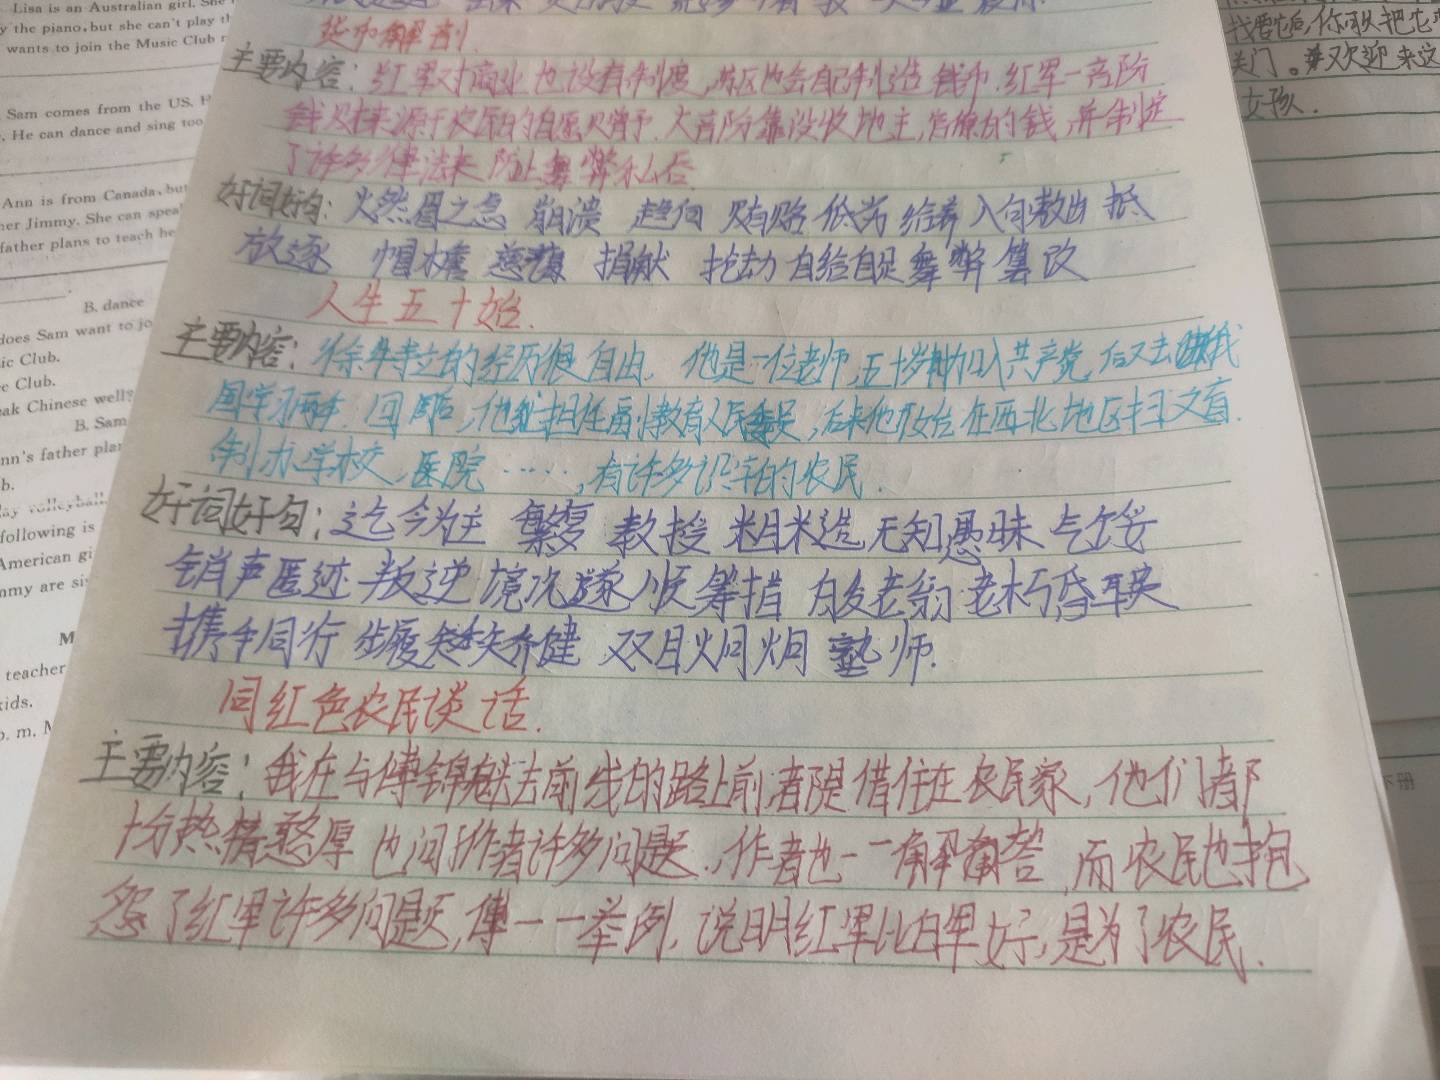 Lisa is an Australian girl. She
y the piano, but she can't play th
wants to join the Music Club
Sam comes from the US. H
. He can dance and sing too
Ann is from Canada, but
her Jimmy. She can speak
father plans to teach he
B. dance
does Sam want to jo
ic Club.
e Club.
eak Chinese well?
B. Sam
nn's father plan
b.
ay volleyball
following is
American gi
mmy are sis
M
teacher
kids.
p. m. M
货币解剖.
主要内容：红军对商业也设有制度,苏区也会自己制造钱币.红军一高阶
钱财来源于农民的自愿赠予.大部阶靠没收地主,官僚的钱,并制定
了许多律法来防止舞弊私吞.
好词好句：火然眉之急 崩溃 趋向 贿赂 低劣 给养 入句敷出 抵
放逐 帽檐 慈蔼 捐献 抢劫 自给自足 舞弊 篡改
人生五十始.
主要内容：徐特立的经历很自由.他是一位老师,五十岁加入共产党,后又去俄
国学习两年.回国后,他就担任副教育人民委员,后来他改在西北地区扫文盲.
制办学校,医院……,有许多识字的农民.
好词好句：迄今为主 繁复 教授 粗糙 无知愚昧 气馁
销声匿迹 叛逆 境况 遂 顺 筹措 老翁 老朽昏聩
携手同行 步履矫健 双目炯炯 塾师.
同红色农民谈话.
主要内容：我在与傅锦魁去前线的路上前者提借住在农民家,他们都
十分热情憨厚 也问了作者许多问题.,作者也一一解答,而农民也抱
怨了红军许多问题,傅一一举例,说明红军比白军好,是为了农民.
关门。欢迎来这
女孩.
下册